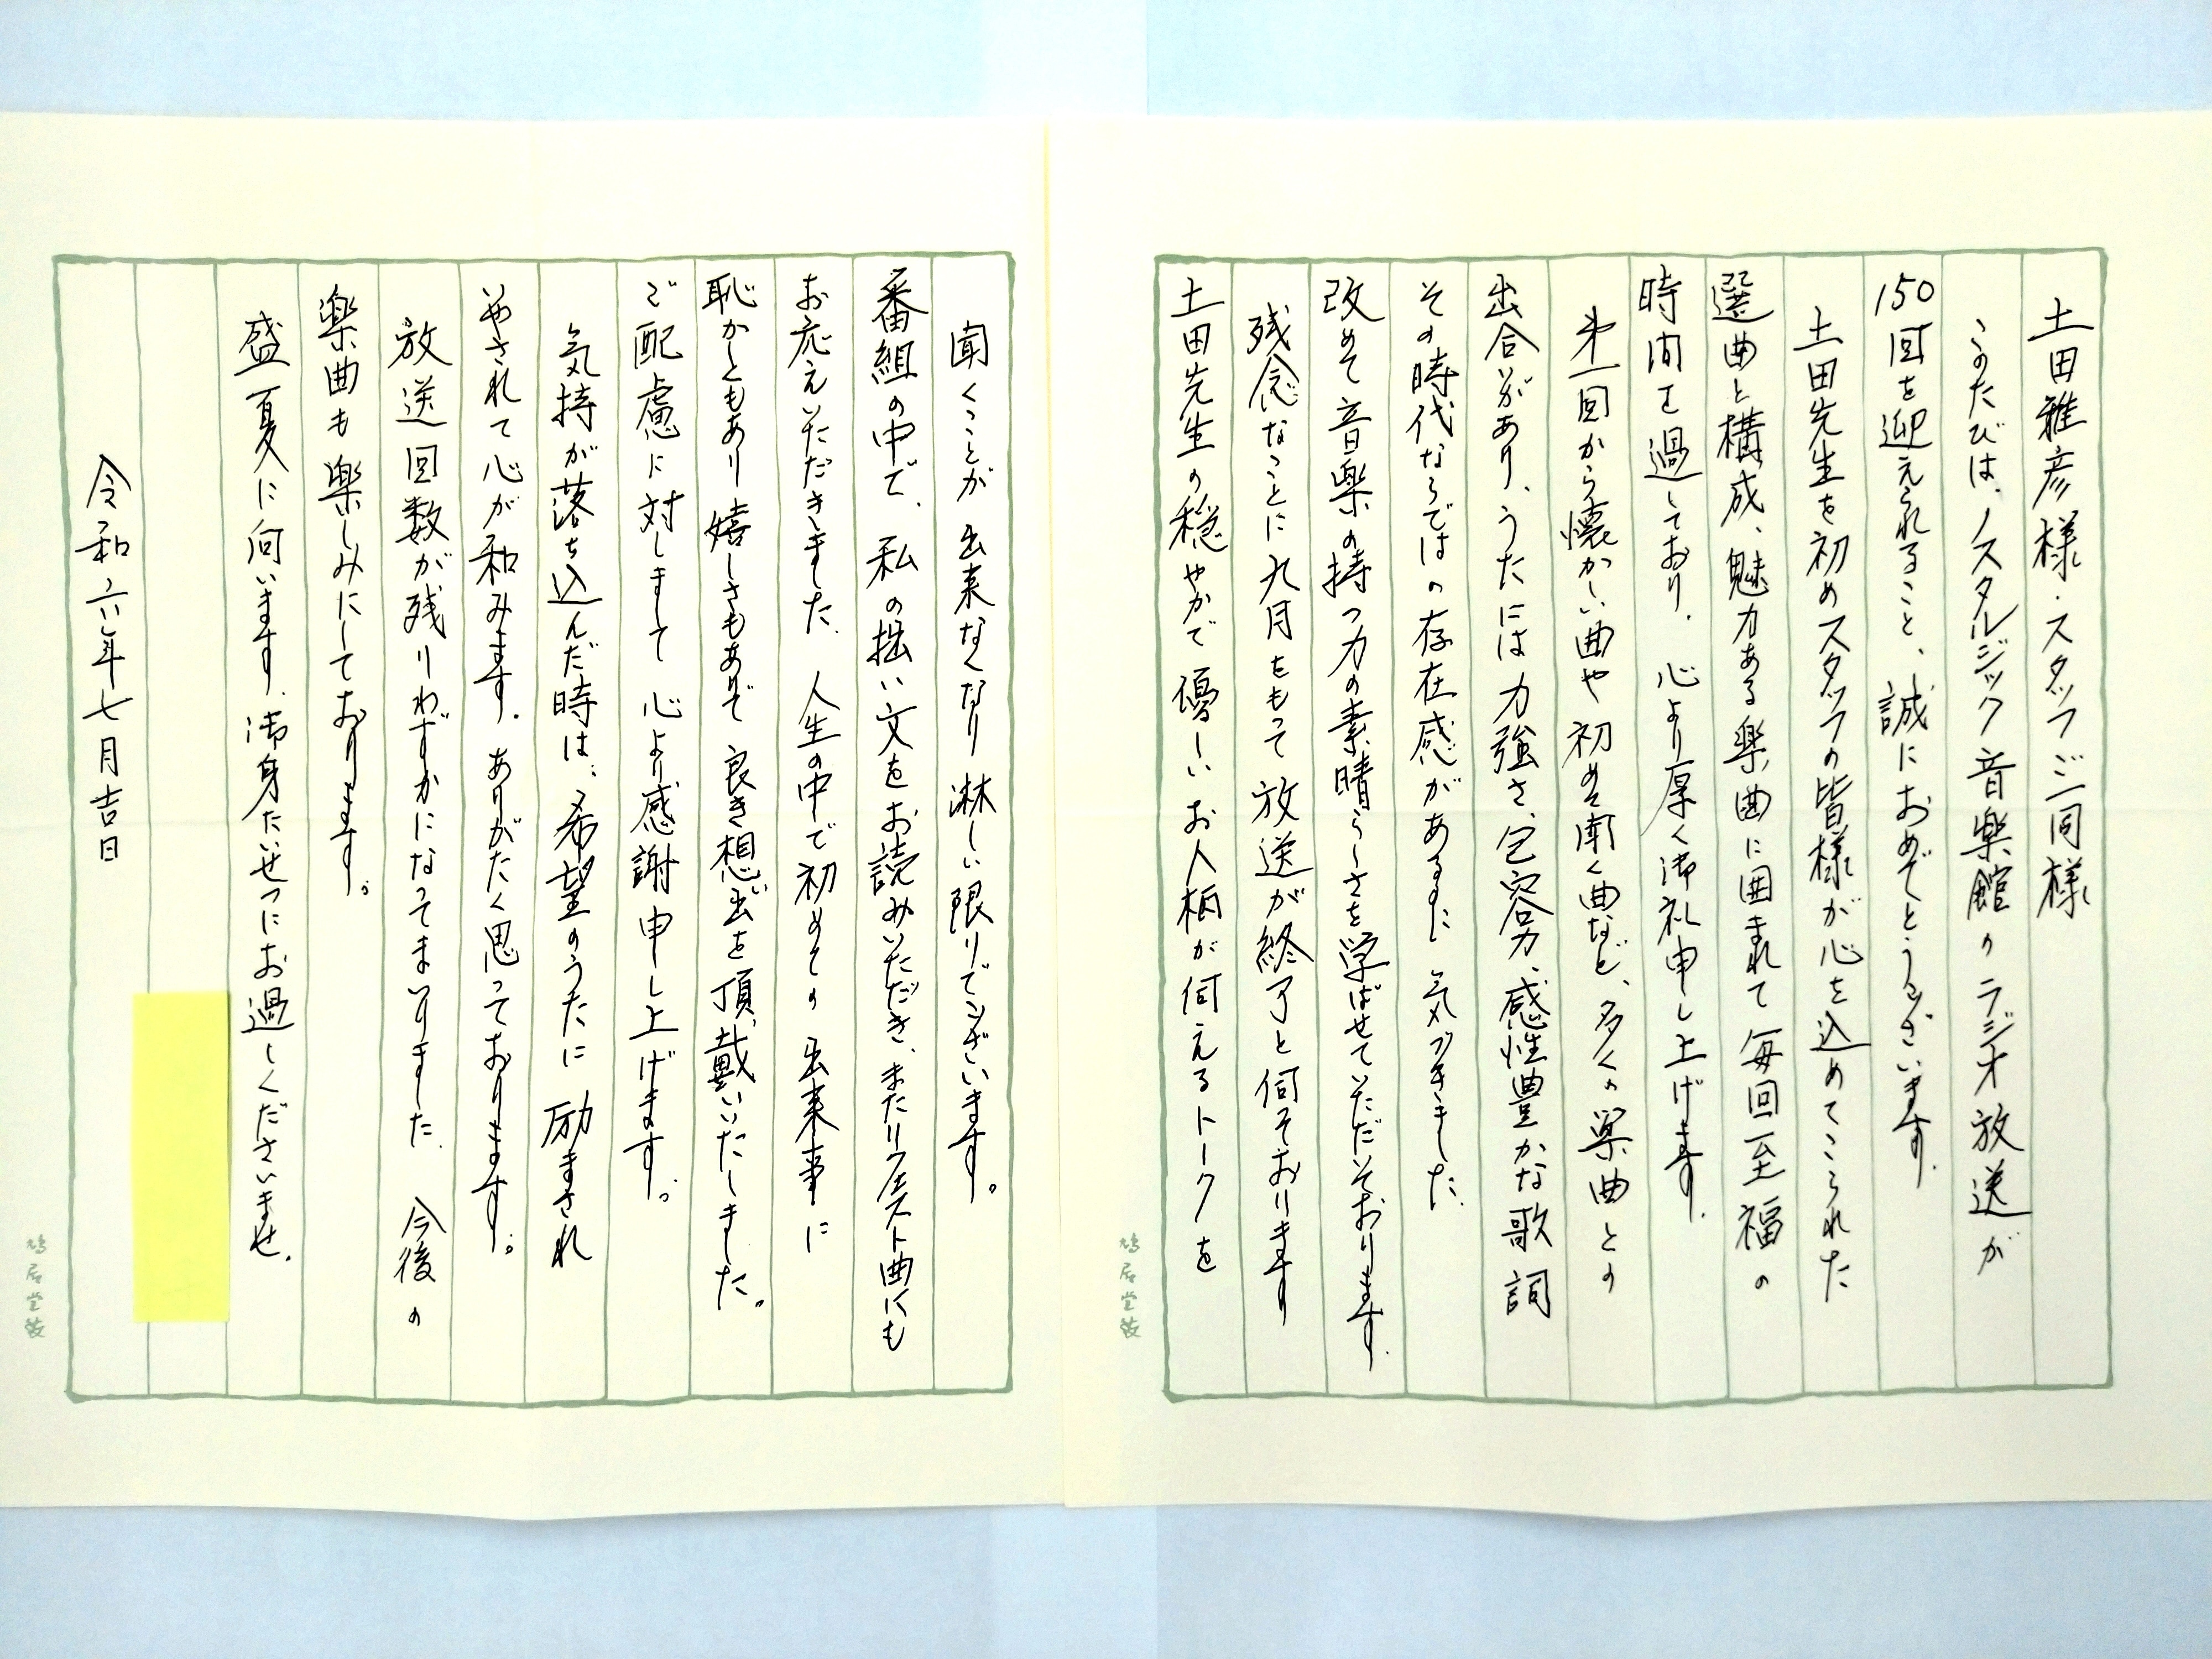 土田雅彦様・スタッフご一同様
このたびは、ノスタルジック音楽館のラジオ放送が
150回を迎えられること、誠におめでとうございます。
土田先生を初めスタッフの皆様が心を込めてこられた
選曲と構成、魅力ある楽曲に囲まれて毎回至福の
時間を過しており、心より厚く御礼申し上げます。
第一回から懐かしい曲や初めて聞く曲など、多くの楽曲との
出合いがあり、うたには力強さ、包容力、感性豊かな歌詞
その時代ならではの存在感があるまに気づきました。
改めて音楽の持つ力の素晴らしさを学ばせていただいております。
残念なことに九月をもって放送が終了と伺っております
土田先生の穏やかで優しいお人柄が伺えるトークを
聞くことが出来なくなり淋しい限りでございます。
番組の中で、私の拙い文をお読みいただき、またリクエスト曲にも
お応えいただきました。人生の中で初めての出来事に
恥かしくもあり嬉しさもありで良き想い出を頂戴いたしました。
ご配慮に対しまして心より感謝申し上げます。
気持が落ち込んだ時は、希望のうたに励まされ
いやされて心が和みます。ありがたく思っております。
放送回数が残りわずかになってまいりました。今後の
楽曲も楽しみにしております。
盛夏に向います。御身たいせつにお過しくださいませ。
令和六年七月吉日
鳩居堂製
鳩居堂製